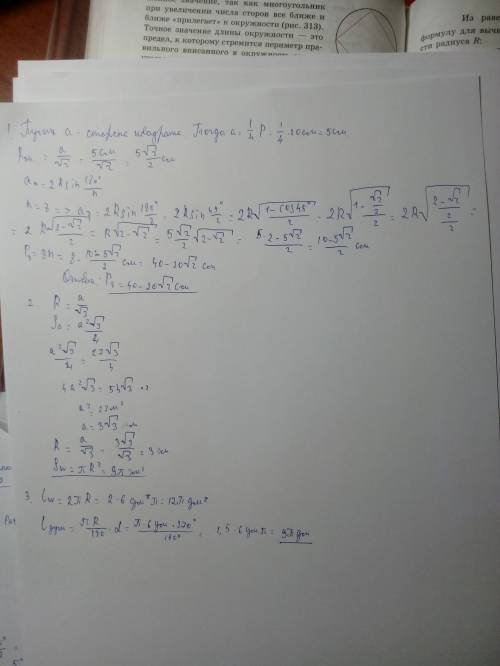 значение, так как многоугольник
при увеличении числа сторон все ближе и
ближе «прилегает» к окружности (рис. 313).
Точное значение длины окружности — это
предел, к которому стремится периметр пра-
вильного вписанного в окружность
Из равен
формулу для вычи
сти радиуса R:
1. Пусть a - сторона квадрата Тогда a = 1/4 P = 1/4 · 20см = 5см
= a/√2 = 5см/√2 = 5√2/2 см
aₙ = 2R sin 180°/n
=> = 2R sin 180°/ = 2R sin 45°/2 = 2R√((1-cos45°)/2) = 2R√((1-√2/2)/2) = 2R√(((2-√2)/2)/2) =
= 2R√(2-√2)/2 = R√(2-√2) = 5√2/2 √(2-√2) = 5·2-5√2/2 = 10-5√2/2 см
P₈ = 8 · 10-5√2/2 см = 40-20√2 см
Ответ: P₈ = 40-20√2 см
2. R = a/√3
= a²√3/4
a²√3/4 = 27√3/4
a² = 27
a = 3√3
R = a/√3 = 3√3/√3 = 3
= πR² = 9π
3. = 2πR = 2·6 дм π = 12π дм
= πR/180 · α = π·6 дм·270°/180° = 1,5·6 дм π = 9π дм